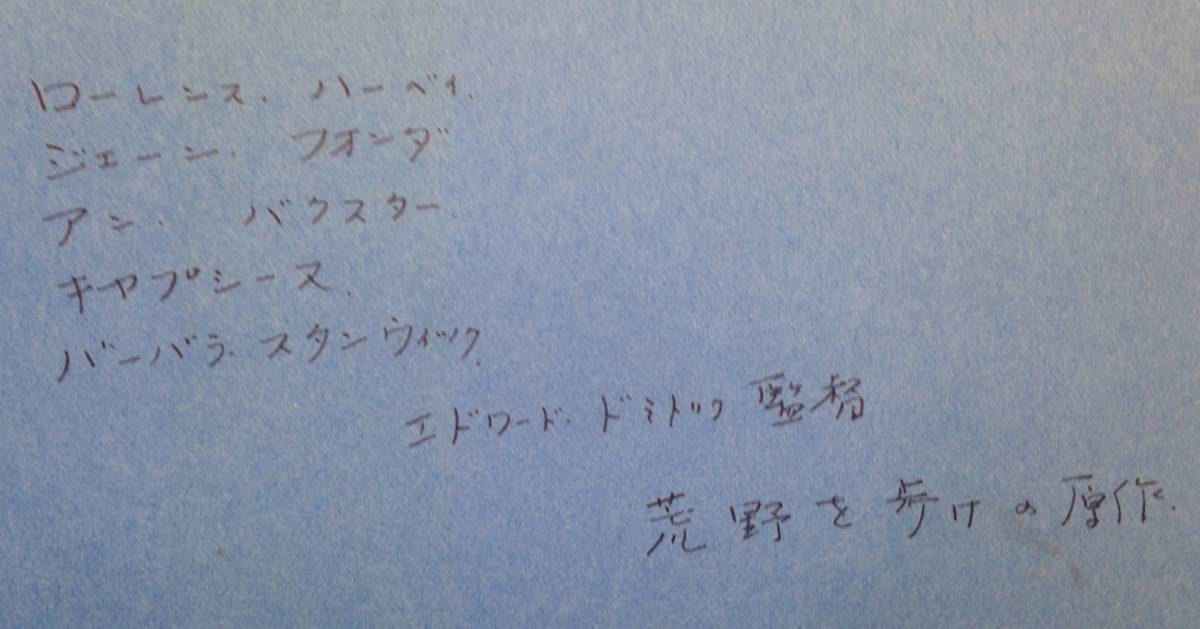 ローレンス. ハーベイ.
ジェーン. フォンダ
アン. バクスター.
キャプシーヌ.
バーバラ. スタンウィック.
エドワード. ドミトリック 監督
荒野を歩けの原作.